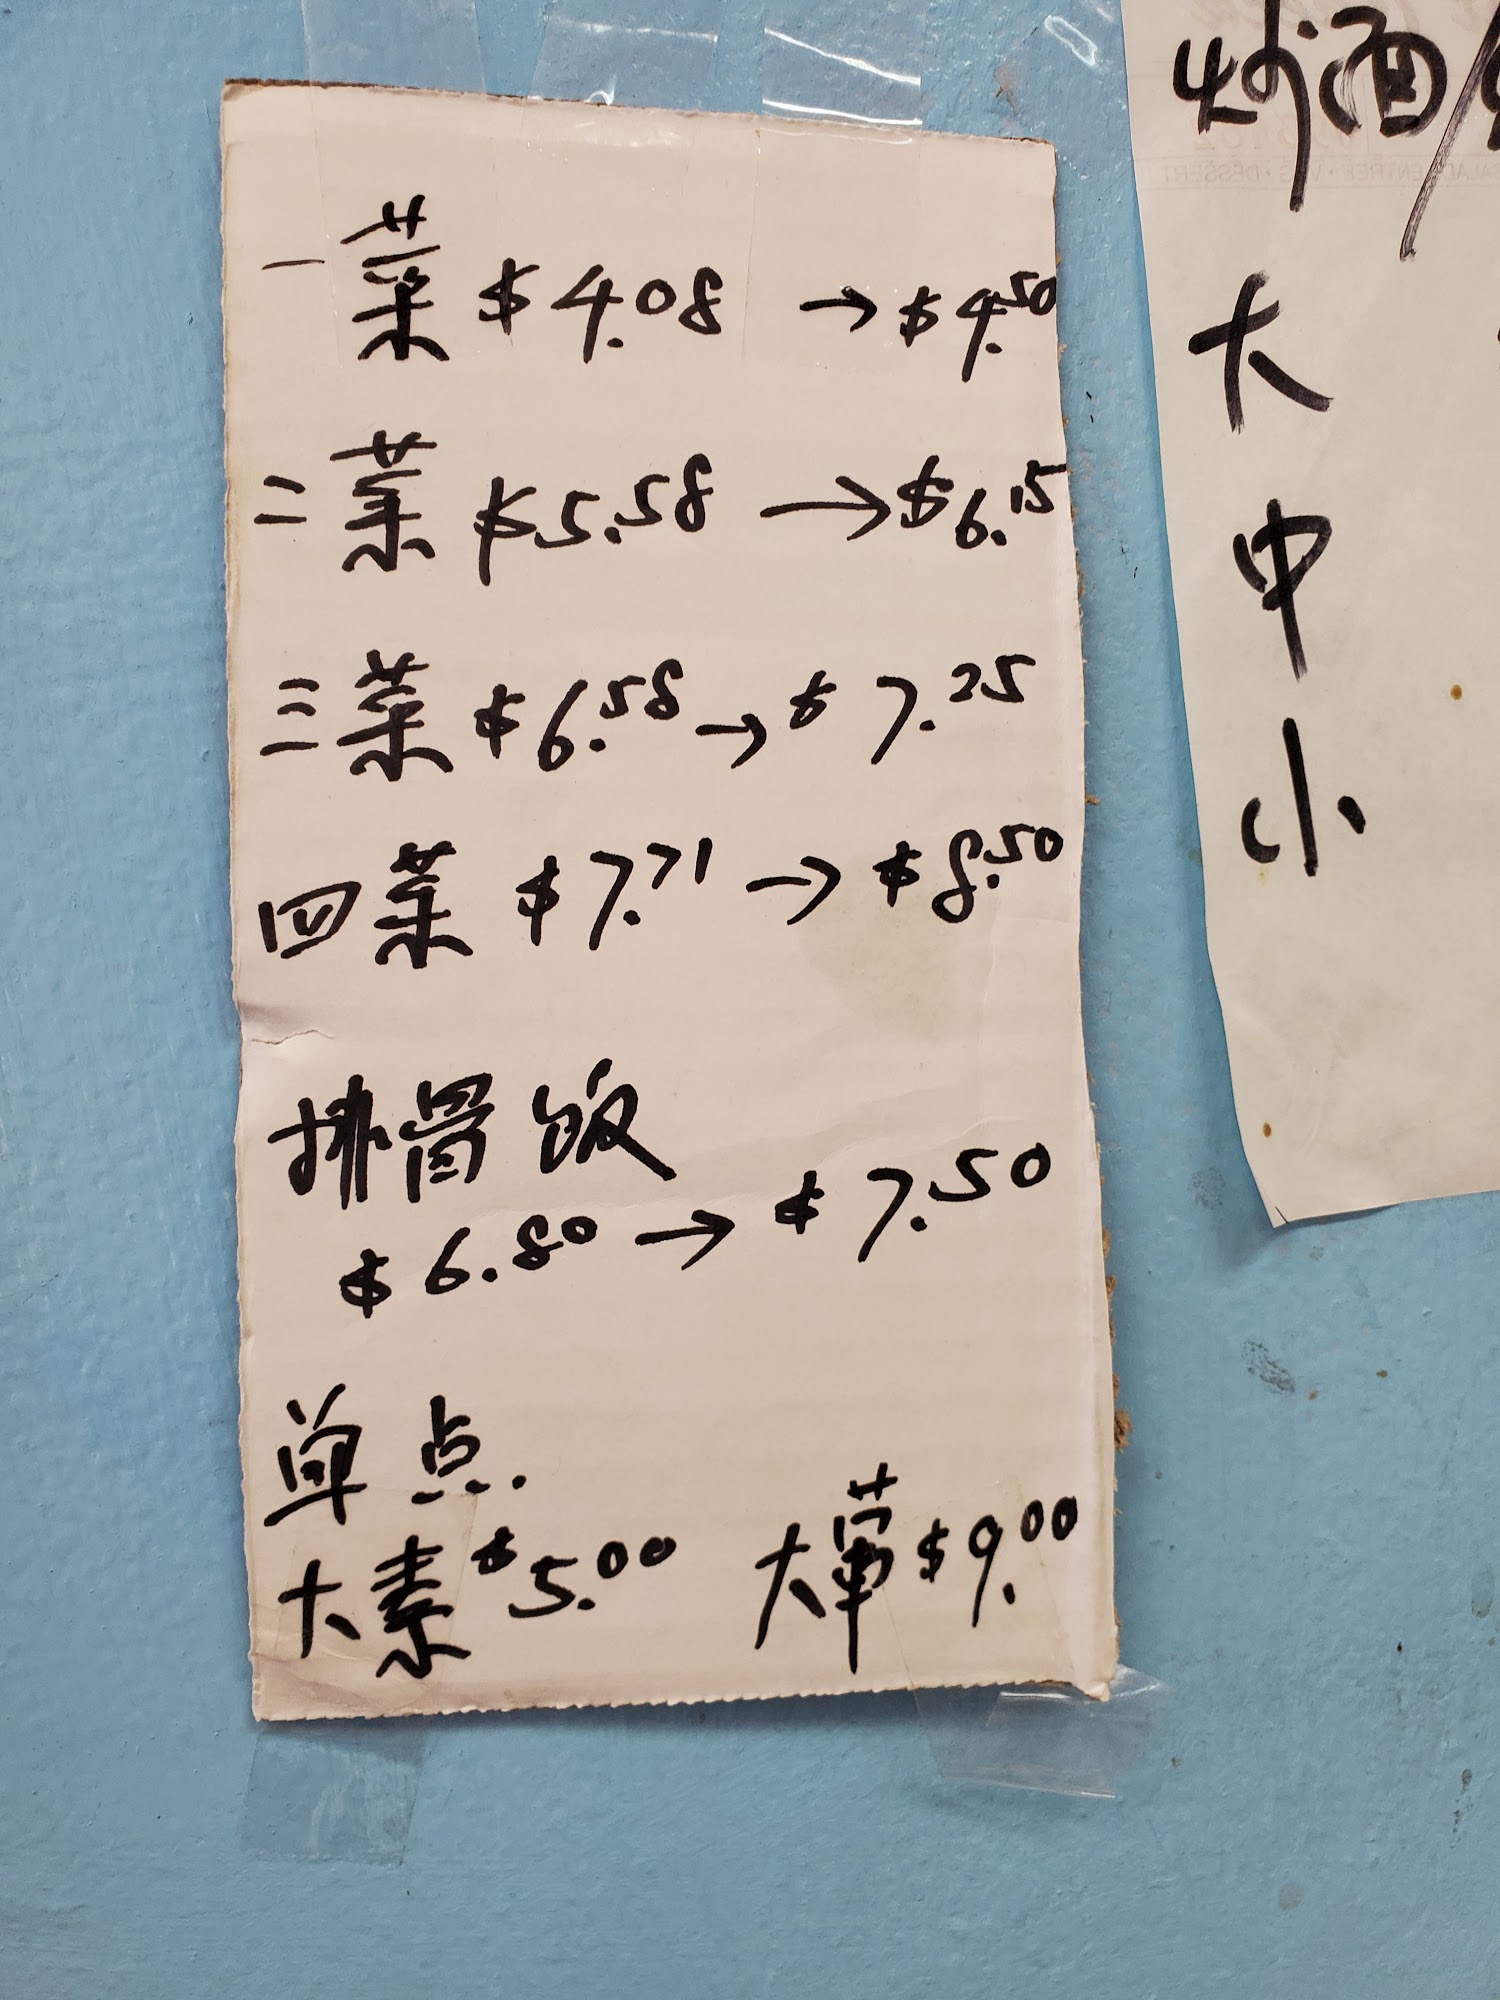 一菜 $4.08 → $4.50
二菜 $5.58 → $6.15
三菜 $6.58 → $7.25
四菜 $7.71 → $8.50
排骨饭
$6.80 → $7.50
单点
大素 $5.00 大荤 $9.00
炒
大
中
小